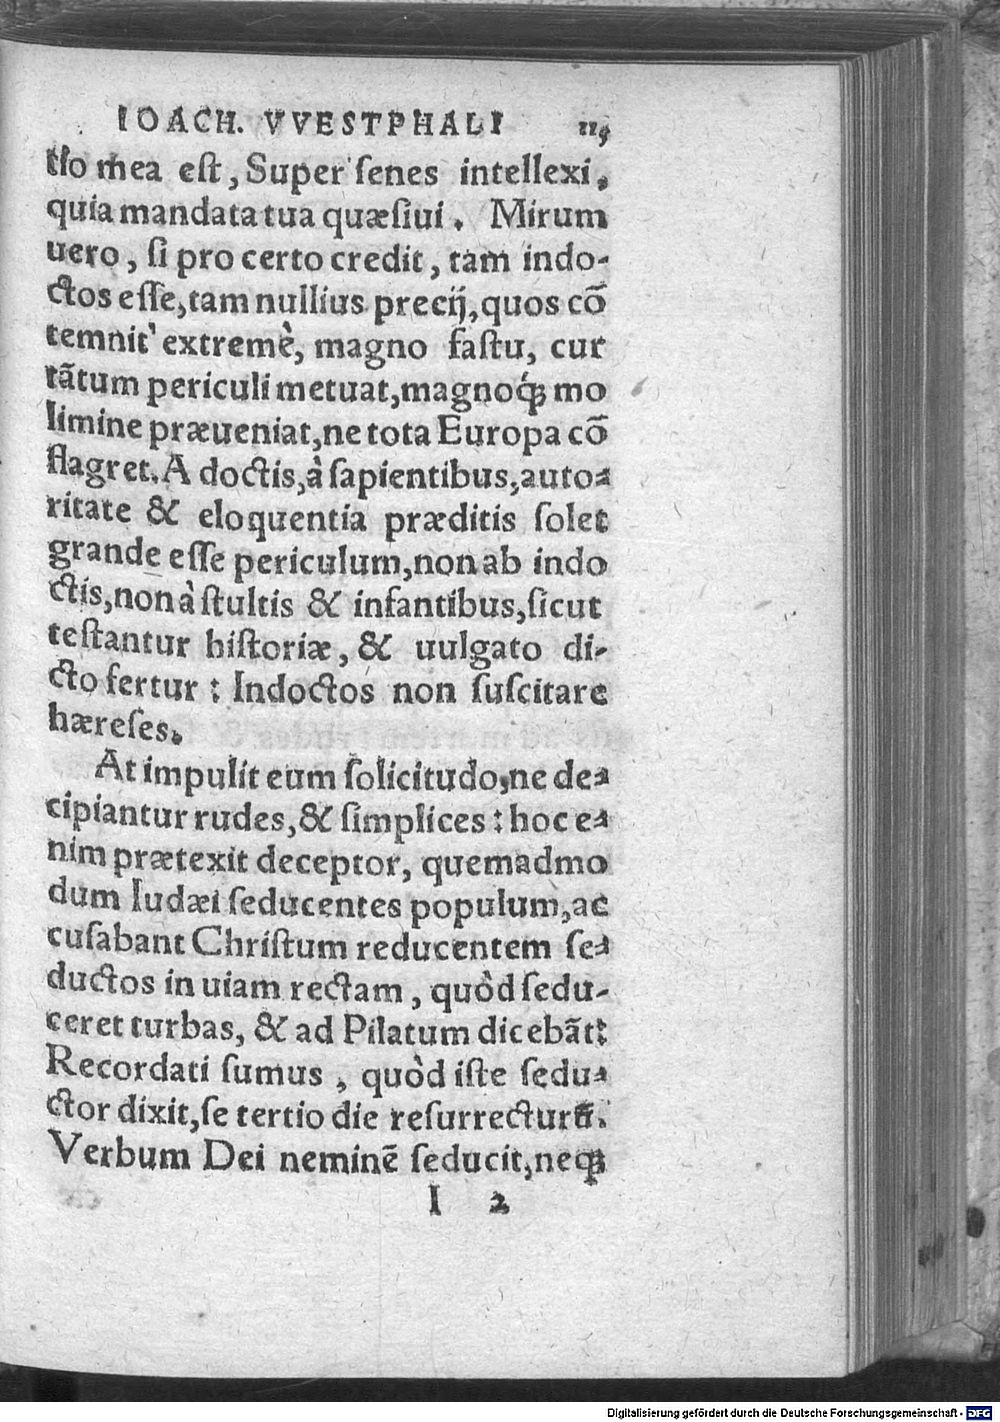 IOACH. VVESTPHALI
tio mea est, Super senes intellexi,
quia mandata tua quæsiui. Mirum
uero, si pro certo credit, tam indo-
ctos esse, tam nullius precij, quos cō
temnit extremè, magno fastu, cur
tātum periculi metuat, magnoq́ꝫ mo
limine præueniat, ne tota Europa cō
flagret. A doctis, à sapientibus, auto-
ritate & eloquentia præditis solet
grande esse periculum, non ab indo
ctis, non à stultis & infantibus, sicut
testantur historiæ, & uulgato di-
cto fertur: Indoctos non suscitare
hæreses.
At impulit eum solicitudo, ne de-
cipiantur rudes, & simplices: hoc e-
nim prætexit deceptor, quemadmo
dum Iudæi seducentes populum, ac
cusabant Christum reducentem se-
ductos in uiam rectam, quòd sedu-
ceret turbas, & ad Pilatum dicebāt:
Recordati sumus, quòd iste sedu-
ctor dixit, se tertio die resurrecturū.
Verbum Dei neminē seducit, neqꝫ
I 2
Digitalisierung gefördert durch die Deutsche Forschungsgemeinschaft - DFG